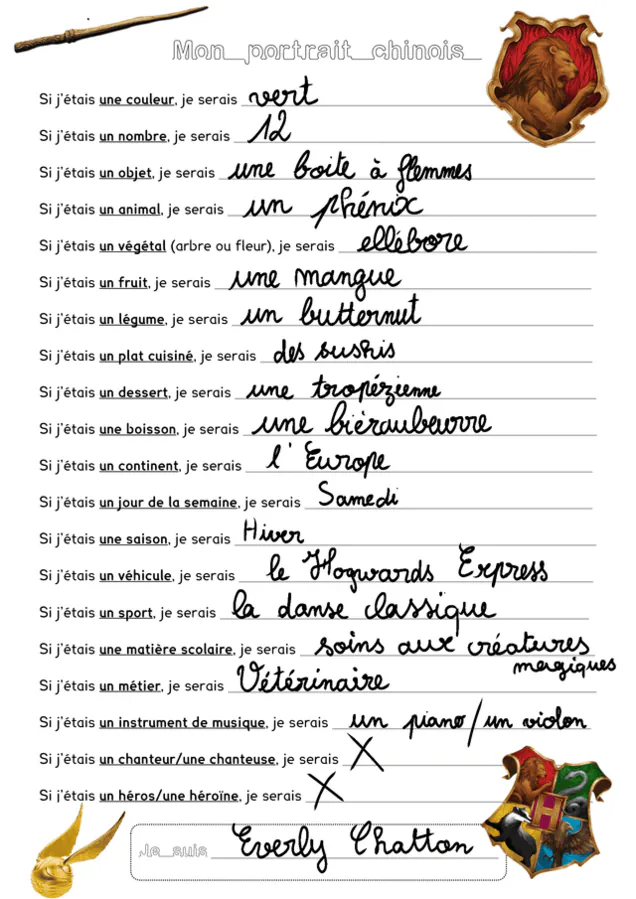 Mon portrait chinois
Si j'étais une couleur, je serais vert
Si j'étais un nombre, je serais 12
Si j'étais un objet, je serais une boite à flemmes
Si j'étais un animal, je serais un phénix
Si j'étais un végétal (arbre ou fleur), je serais ellébore
Si j'étais un fruit, je serais une mangue
Si j'étais un légume, je serais un butternut
Si j'étais un plat cuisiné, je serais des sushis
Si j'étais un dessert, je serais une tropézienne
Si j'étais une boisson, je serais une bièraubeurre
Si j'étais un continent, je serais l'Europe
Si j'étais un jour de la semaine, je serais Samedi
Si j'étais une saison, je serais Hiver
Si j'étais un véhicule, je serais le Hogwards Express
Si j'étais un sport, je serais la danse classique
Si j'étais une matière scolaire, je serais soins aux créatures
magiques
Si j'étais un métier, je serais Vétérinaire
Si j'étais un instrument de musique, je serais un piano/un violon
Si j'étais un chanteur/une chanteuse, je serais X
Si j'étais un héros/une héroïne, je serais X
Je suis Everly Chatton